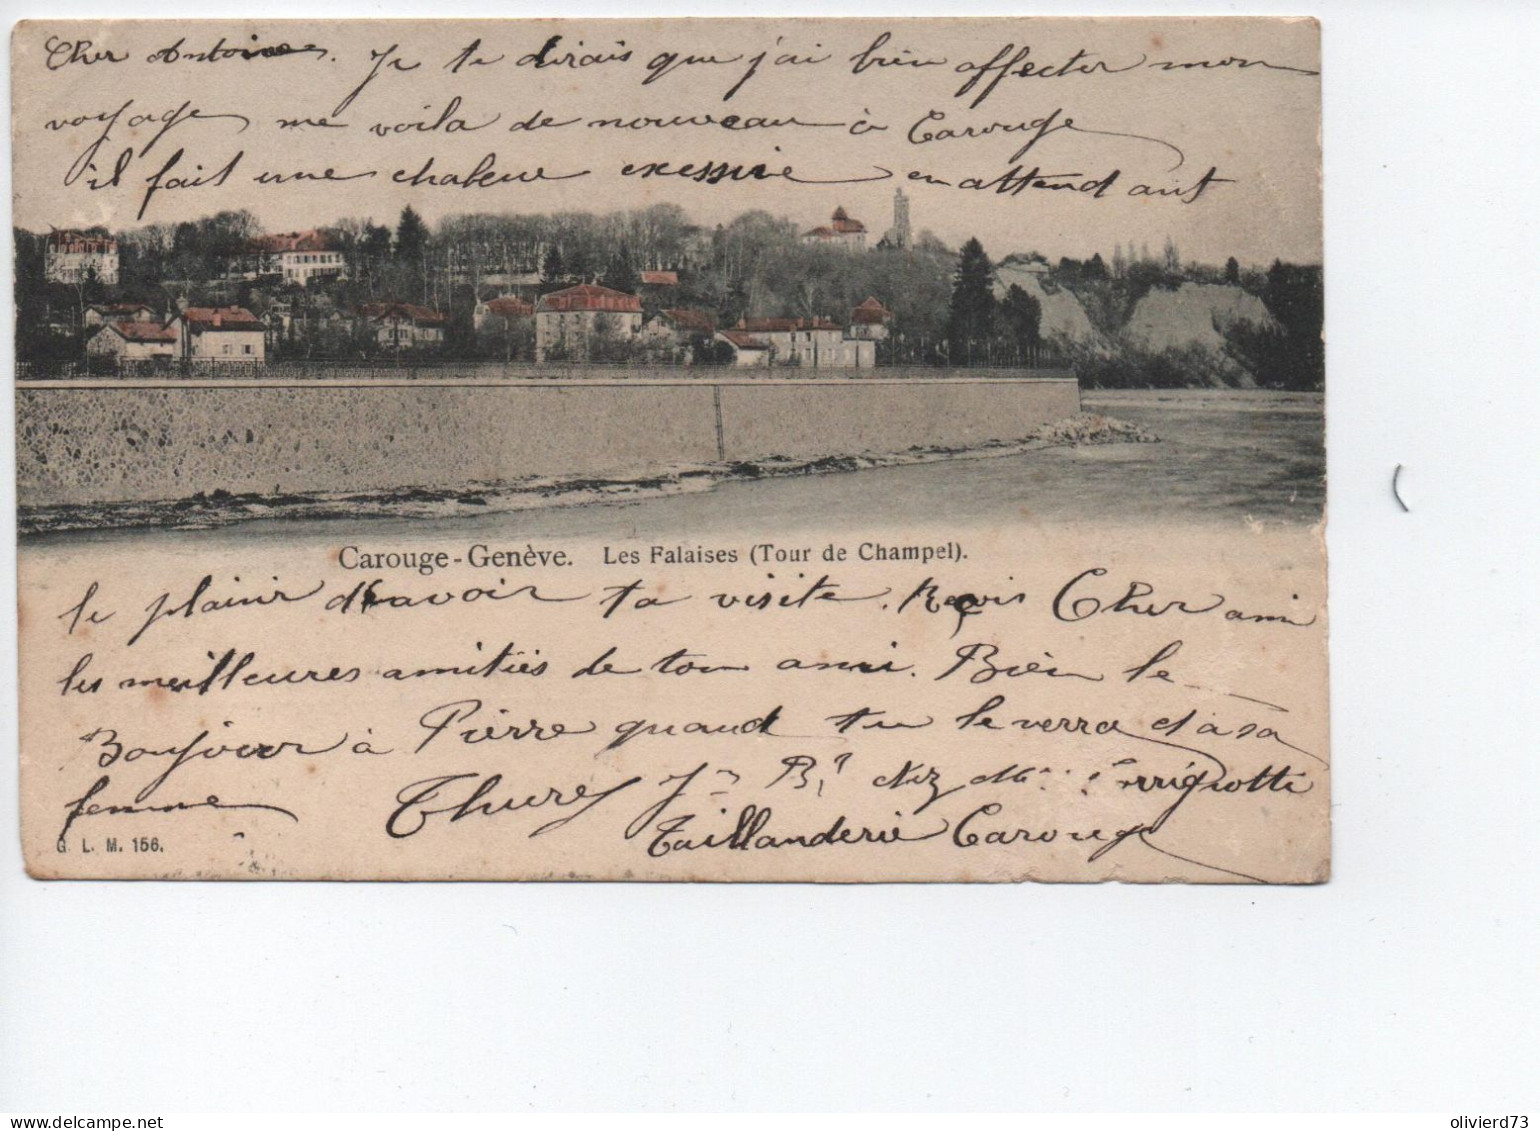 Cher Antoine. Je te dirais que j'ai bien affecter mon
voyage me voila de nouveau à Carouge
il fait une chaleur exessive en attendant
Carouge-Genève. Les Falaises (Tour de Champel).
le plaisir d'avoir ta visite. Reçois Cher ami
les meilleures amitiés de ton ami. Bien le
Bonjour à Pierre quand tu le verra et à sa
femme
chez Mr
Taillanderie Carouge
G. L. M. 156.
olivierd73